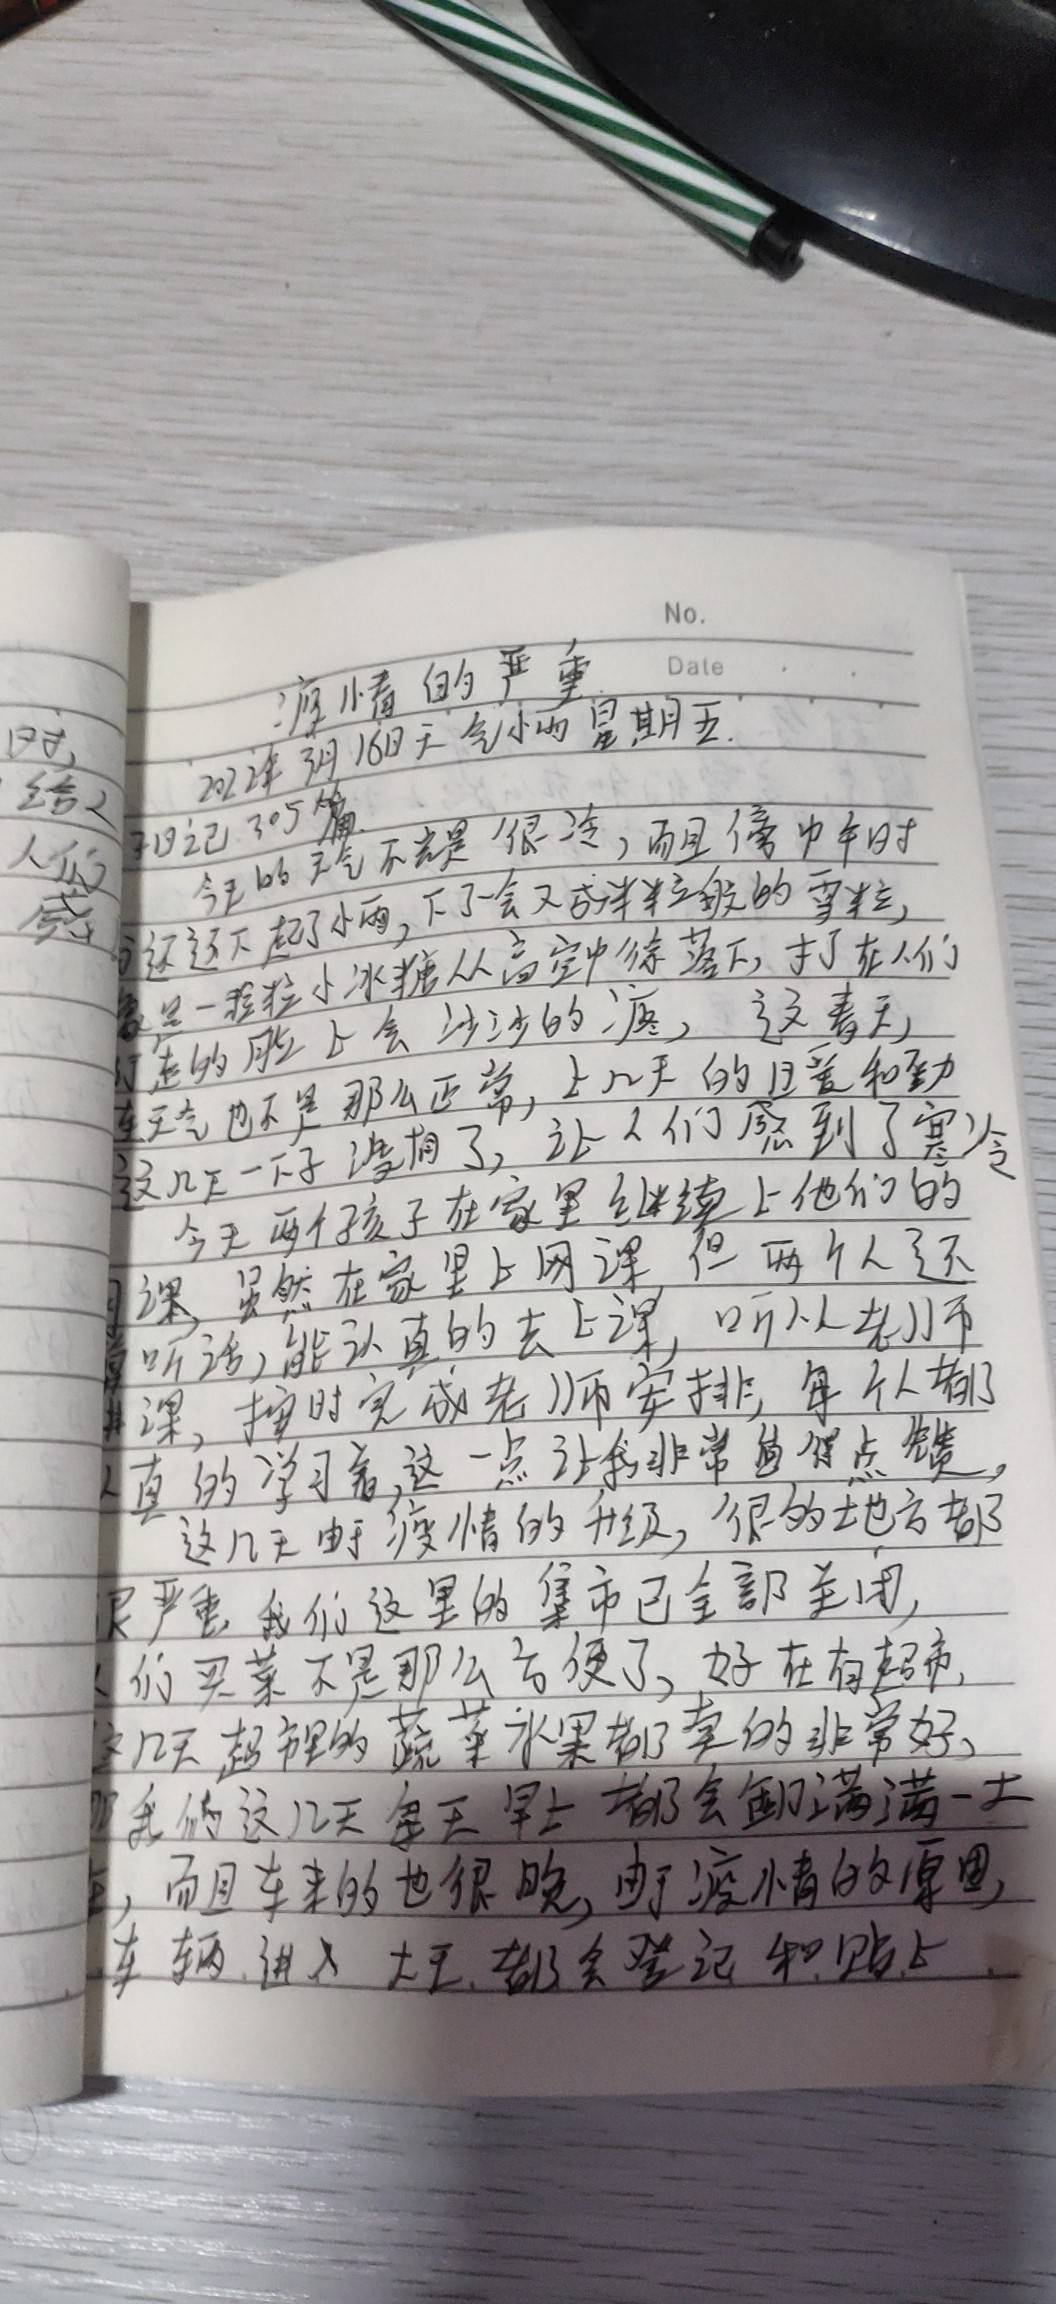 时,
给人
人们
感
No.
Date
疫情的严重
2022年3月16日天气小雨星期五.
日记305篇.
今天的天气不光是很冷,而且傍中午时
还还下起了小雨,下了一会又成米粒般的雪粒,
是一粒粒小冰糖从高空中徐落下,打了在人们
走的脸上会沙沙的疼,这春天,
天气也不是那么正常,上几天的日暖和劲
这几天一下子没有了,让人们感到了寒冷
今天两个孩子在家里继续上他们的
课,虽然在家里上网课,但两个人还
听话,能认真的去上课,听从老师
课,按时完成老师安排,每个人都
真的学习着,这一点让我非常值得点赞,
这几天由于疫情的升级,很的地方都
很严重,我们这里的集市已全部关闭,
们买菜不是那么方便了,好在有超市,
这几天超市里的蔬菜水果都卖的非常好,
我们这几天每天早上都会卸满满一大
,而且车来的也很晚,由于疫情的原因,
车辆进入大王都会登记和贴上